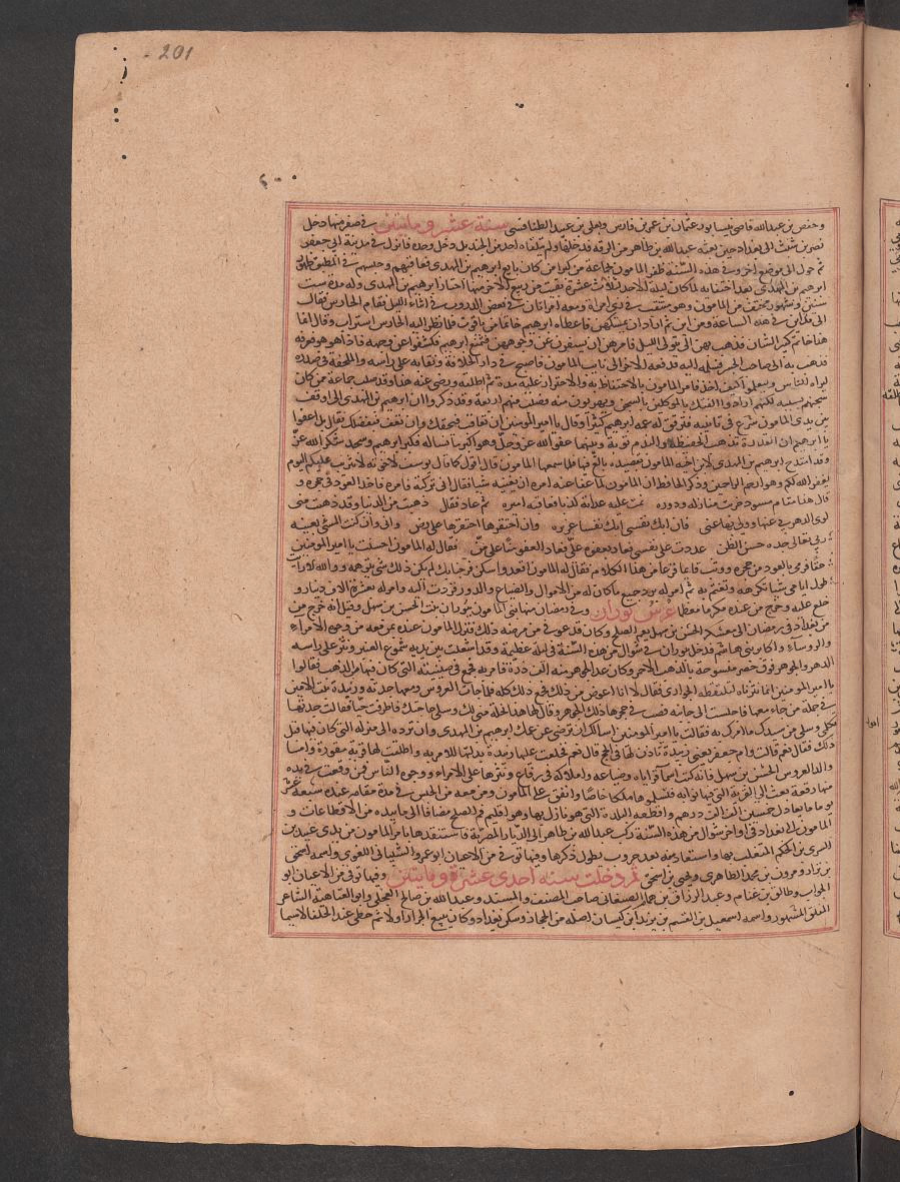 201
وحفص بن عبدالله قاضي نيسابور وعثمان بن عمر بن فارس ويعلى بن عبيد الطنافسي سنة عشر ومايتين في صفر منها دخل
نصر بن شبث الى بغداد حين بعثه عبدالله بن طاهر من الرقة فدخلها ولم يتلقاه احد من الجند بل دخل وحده فانزل في مدينة ابي جعفر
ثم حول الى موضع اخر وفي هذه السنة ظفر المامون بجماعة من كبرا من كان بايع ابراهيم بن المهدي فعاقبهم وحبسهم في المطبق
ابراهيم بن المهدي بعد اختفايه لما كان ليلة الاحد لثلاث عشرة بقيت من ربيع الاخر منها اجتاز ابراهيم بن المهدي وله مدة ست
سنين وشهور مختف من المامون وهو منتقب في زي امراة ومعه امراتان في بعض الدروب في اثناء الليل فقام الحارس فقال
الى اين في هذه الساعة ومن اين ثم اراد ان يمسكهن فاعطاه ابراهيم خاتما من ياقوت فلما نظر اليه الحارس استراب وقال انما
هذا خاتم كبير الشان فذهب بهن الى متولى الليل فامرهن ان يسفرن عن وجوههن فتمنع ابراهيم فكشفوا عن وجهه فاذا هو هو فعرفه
فذهب به الى صاحب الجسر فسلمه اليه فدفعه الاخر الى نايب المامون فاصبح في دار الخلافة ونقابه على راسه والملحفة في صدره
ليراه الناس وليعلموا كيف اخذ فامر المامون بالاحتفاظ به والاحتراز عليه مدة ثم اطلقه ورضي عنه هذا وقد صلب جماعة ممن كان
سجنهم بسببه لكونهم ارادوا الفتك بالموكلين بالسجن ويهربون منه فصلب منهم اربعة وقد ذكروا ان ابراهيم بن المهدي لما وقف
بين يدي المامون شرع في تانيبه فترقق له عمه ابراهيم كثيرا وقال يا امير المومنين ان تعاقب فبحقك وان تعف فبفضلك فقال بل اعفوا
يا ابراهيم ان القدرة تذهب الحفيظة والندم توبة وبينهما عفو الله عز وجل وهو اكبر مما نساله فكبر ابراهيم وسجد شكرا لله عز
وقد امتدح ابراهيم بن المهدي لابن اخيه المامون بقصيدة بالغ فيها فلما سمعها المامون قال اقول كما قال يوسف لاخوته لا تثريب عليكم اليوم
يغفر الله لكم وهو ارحم الراحمين وذكر الحافظ ان المامون لما عفا عنه امره ان يغنيه شيا فقال اني تركته فامره فاخذ العود في حجره و
قال هذا مقام مسرور خربت منازله ودوره نمت عليه عداته كذبا فعاقبه اميره ثم عاد فقال ذهبت من الدنيا وقد ذهبت مني
لوى الدهر بي عنها وولى بها عني فان ابك نفسي ابك نفسا عزيزه وان احتقرها احتقرها على ضن واني وان كنت المسي بعينه
بربي تعالى جده حسن الظن عدوت على نفسي فعاد بعفوه علي فعاد العفو منا على من فقال له المامون احسنت يا امير المومنين
حقا فرمى بالعود من حجره ووثب قايما فزعا من هذا الكلام فقال له المامون اقعد واسكن
خلع عليه وخرج من عنده مكرما معظما عرس بوران وفي رمضان منها بنى المامون ببوران بنت الحسن بن سهل وقيل انه خرج من
من بغداد في رمضان الى معسكر الحسن بن سهل بفم الصلح وكان قد عوفي من مرضه ذلك فنزل المامون عنده بمن معه من وجوه الامراء
والروساء واكابر بني هاشم فدخل ببوران في شوال من هذه السنة في ليلة عظيمة وقد اشعلت بين يديه شموع العنبر ونثر على راسه
الدر والجوهر فوق حصر منسوجة بالذهب الاحمر وكان عدد الجوهر منه الف درة فامر به فجمع في صينيته التي كان فيها من الذهب فقالوا
يا امير المومنين انما نثرناه لتلتقطه الجواري فقال لا انا اعوضهن من ذلك فجمع ذلك كله فلما جات العروس ومعها جدتها وزبيدة
في جملة من جاء معها فاجلست الى جانبه فصب في حجرها ذلك الجوهر وقال لها هذا نحلة مني لك وسلي حاجتك فاطرقت حيا فقالت جدتها
تكلمي وسلي من سيدك ما امرك به فقالت يا امير المومنين اسالك ان ترضى عن عمك ابراهيم بن المهدي وان ترده الى منزلته التي كان فيها قبل
ذلك فقال نعم قالت وام جعفر يعني زبيدة تاذن لها في الحج قال نعم فخلعت عليها زبيدة بدلتها الاموية واطلقت لها قرية مقورة واما
والد العروس الحسن بن سهل فانه كتب اسما قراياه وضياعه واملاكه في رقاع ونثرها على الامراء ووجوه الناس فمن وقعت في يده
منها رقعة بعث الى القرية التي فيها نوابه فسلموها ملكا خاصا وانفق على المامون ومن معه من الجيش في مدة مقامه عنده سبعة عشر
يوما ما يعادل خمسين الف الف درهم واقطعه البلدة التي هو نازل بها وهو اقليم فم الصلح مضافا الى ما بيده من الاقطاعات و
المامون الى بغداد في اواخر شوال من هذه السنة وركب عبدالله بن طاهر الى الديار المصرية فاستنقذها بامر المامون من يدي عبيد بن
السري بن الحكم المتغلب بها واستعادها منه بعد حروب يطول ذكرها وفيها توفي من الاعيان ابو عمرو الشيباني اللغوي واسمه اسحق
بن مرار ومروان بن محمد الطاطري ويحيى بن اسحق ثم دخلت سنة احدى عشرة ومايتين وفيها توفي من الاعيان ابو
الجواب وطلق بن غنام وعبد الرزاق بن همام الصنعاني صاحب المصنف والمسند وعبدالله بن صالح العجلي وابو العتاهية الشاعر
المفلق المشهور واسمه اسمعيل بن القسم بن سويد بن كيسان اصله من الحجاز وسكن بغداد وكان يبيع الجرار اولا ثم حظي عند الخلفا لاسيما